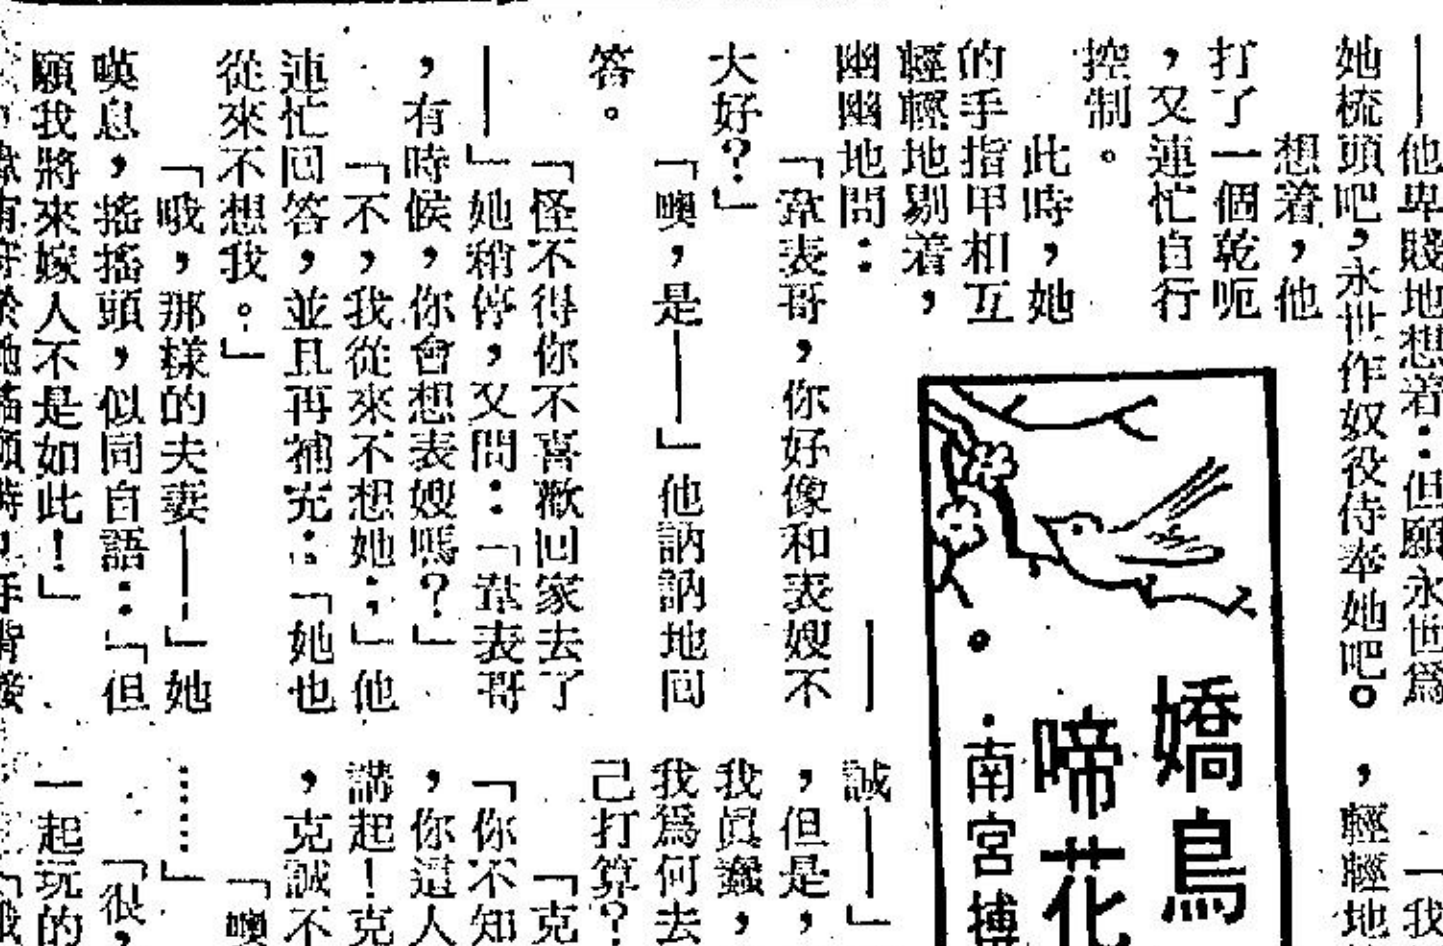 ——他卑賤地想着：但願永世爲
她梳頭吧，永世作奴役侍奉她吧。
想着，他
打了一個乾呃
，又連忙自行
控制。
此時，她
的手指甲相互
輕輕地剔着，
幽幽地問：
——
「韋表哥，你好像和表嫂不
大好？」
「噢，是——」他訥訥地囘
答。
「怪不得你不喜歡囘家去了
——」她稍停，又問：「韋表哥
，有時候，你會想表嫂嗎？」
「不，我從來不想她；」他
連忙囘答，並且再補充：「她也
從來不想我。」
「哦，那樣的夫妻——」她
嘆息，搖搖頭，似同自語：「但
願我將來嫁人不是如此！」
嬌鳥
啼花
·南宮搏
「我
，輕輕地
誠——」
，但是，
我眞蠢，
我爲何去
己打算？
「克
「你不知
，你這人
講起！克
，克誠不
「噢
……」
「很，
一起玩的